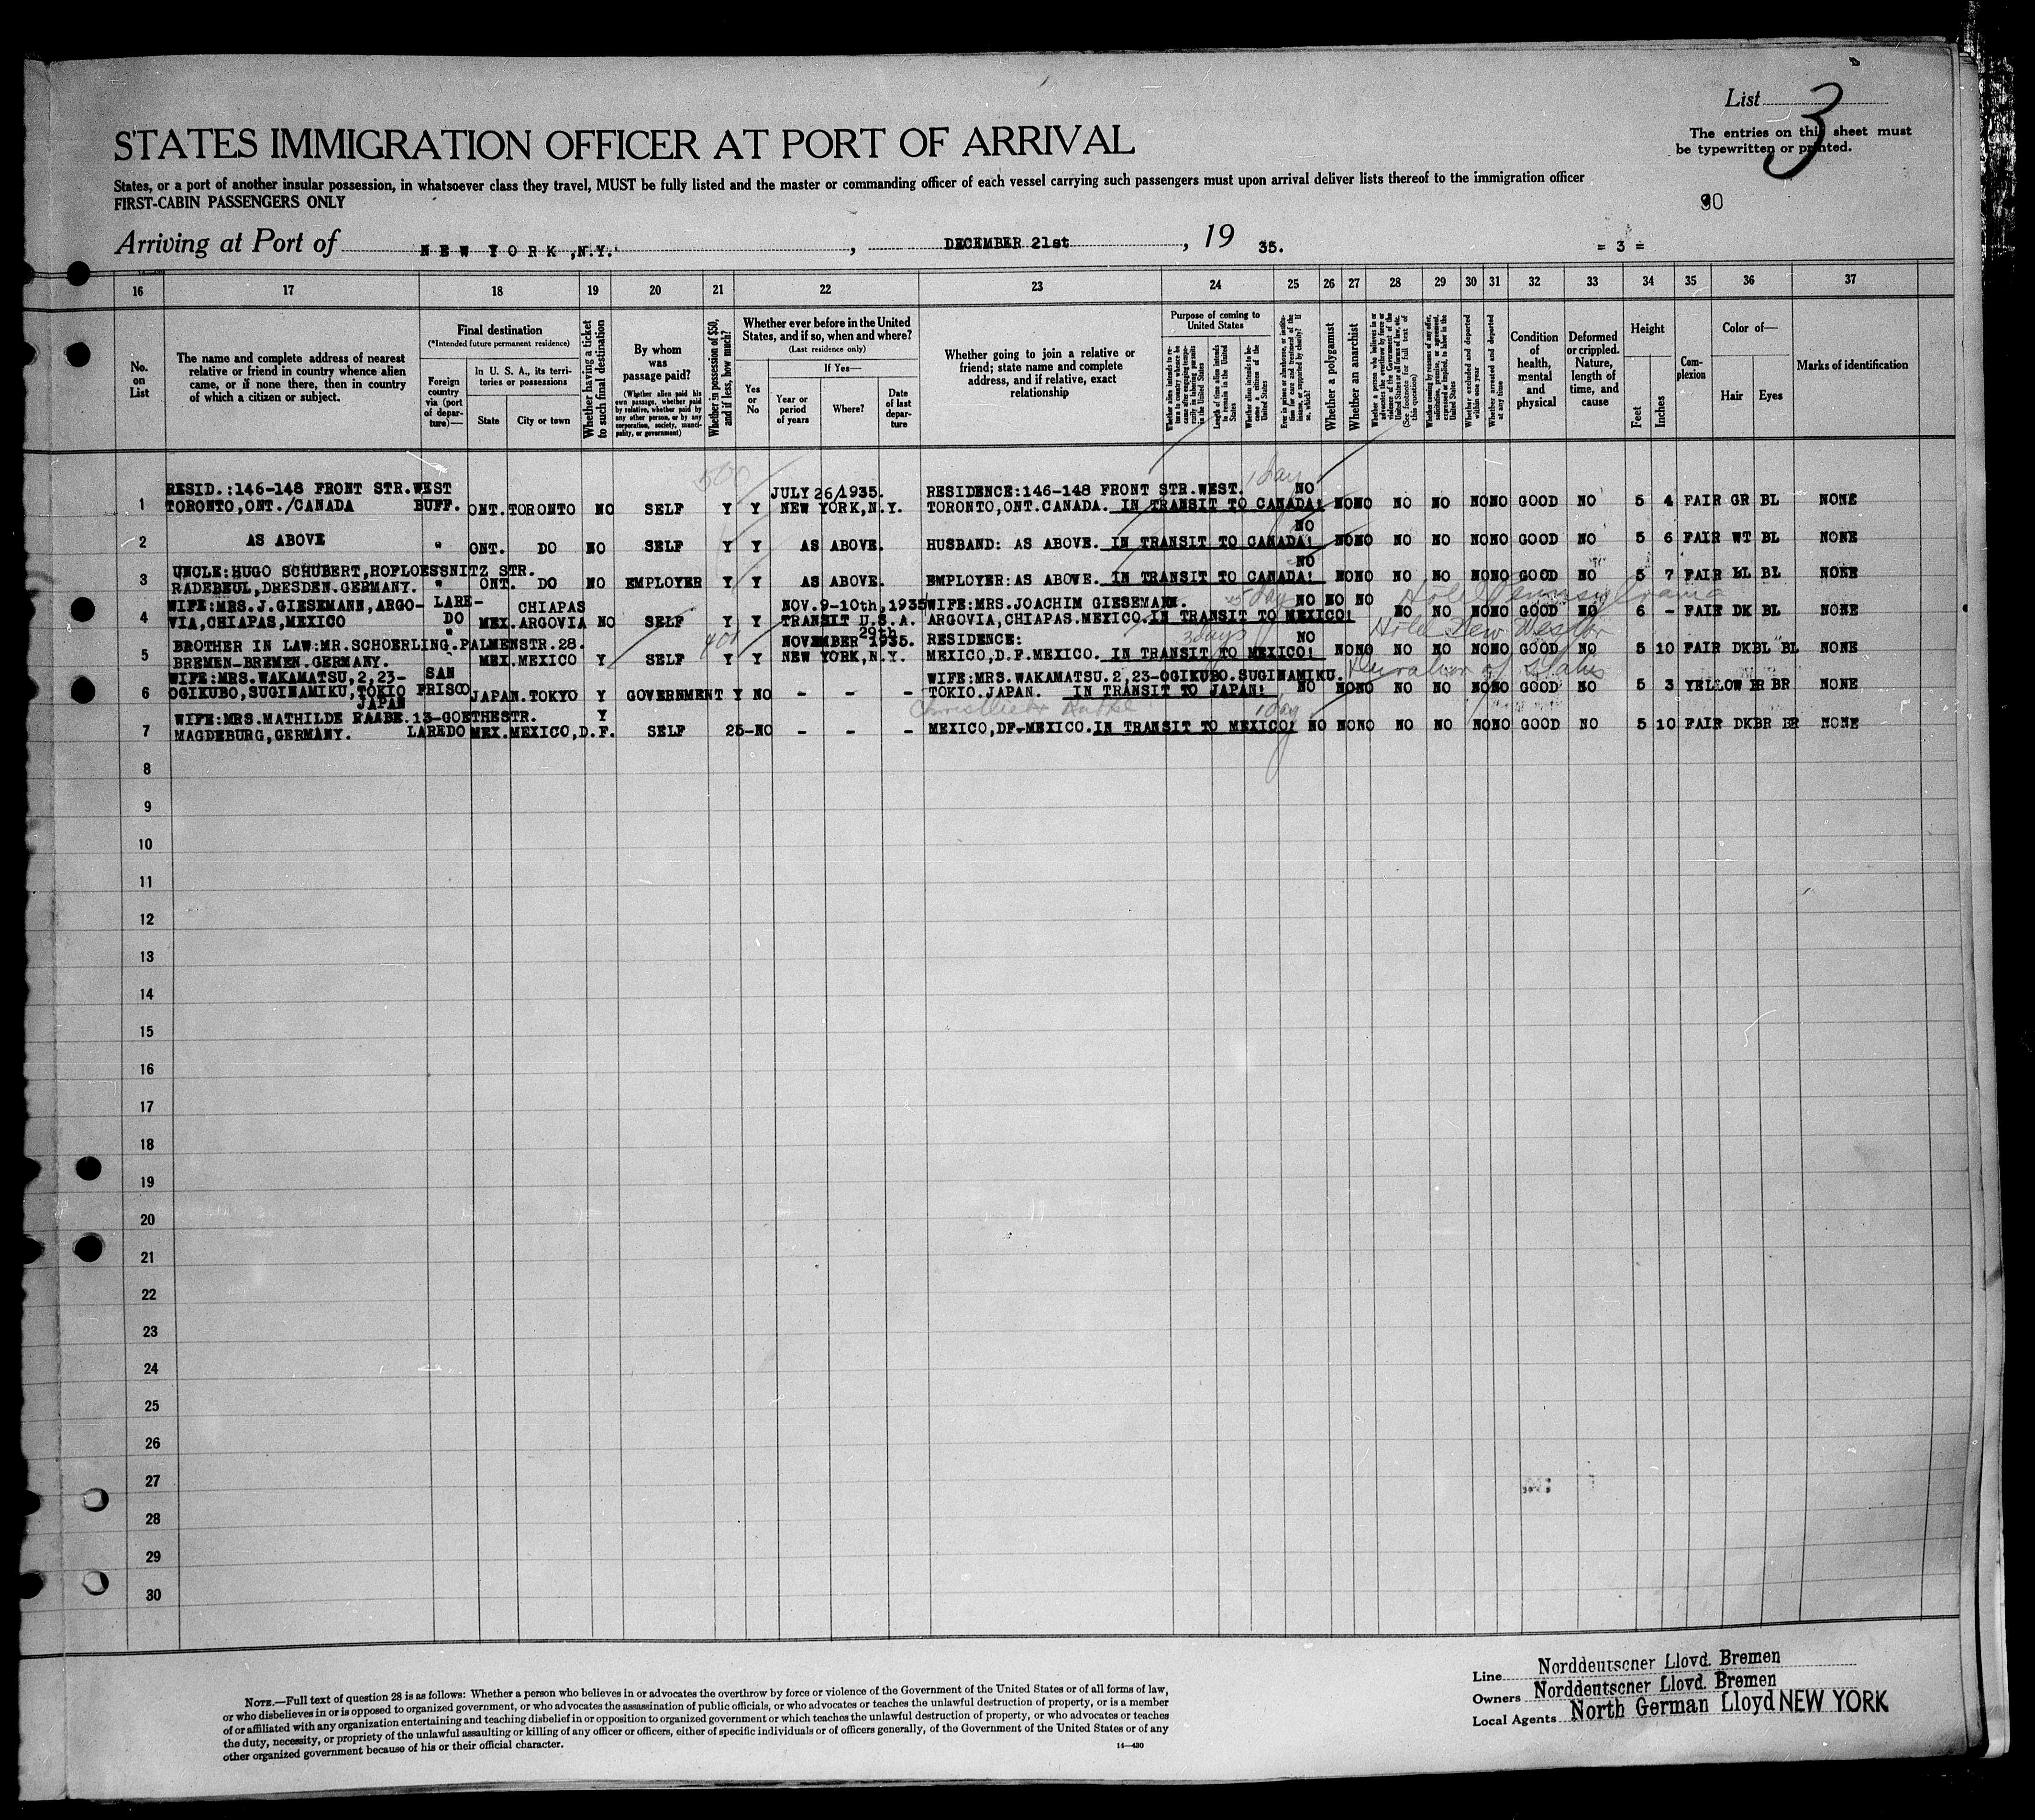 List 3
STATES IMMIGRATION OFFICER AT PORT OF ARRIVAL
The entries on this sheet must
be typewritten or printed.
States, or a port of another insular possession, in whatsoever class they travel, MUST be fully listed and the master or commanding officer of each vessel carrying such passengers must upon arrival deliver lists thereof to the immigration officer
FIRST-CABIN PASSENGERS ONLY
90
Arriving at Port of NEW YORK, N.Y. , DECEMBER 21st , 19 35.
= 3 =
16 17 18 19 20 21 22 23 24 25 26 27 28 29 30 31 32 33 34 35 36 37
No. on List
The name and complete address of nearest relative or friend in country whence alien came, or if none there, then in country of which a citizen or subject.
Final destination
(*Intended future permanent residence)
Foreign country via (port of departure)—
In U. S. A., its territories or possessions
State
City or town
Whether having a ticket to such final destination
By whom was passage paid?
(Whether alien paid his own passage, whether paid by relative, whether paid by any other person, or by any corporation, society, municipality, or government)
Whether in possession of $50, and if less, how much?
Whether ever before in the United States, and if so, when and where?
(Last residence only)
Yes or No
If Yes—
Year or period of years
Where?
Date of last departure
Whether going to join a relative or friend; state name and complete address, and if relative, exact relationship
Purpose of coming to United States
Whether alien intends to return to country whence he came after engaging temporarily in laboring pursuits in the United States
Length of time alien intends to remain in the United States
Whether alien intends to become a citizen of the United States
Ever in prison or almshouse, or institution for care and treatment of the insane, or supported by charity? If so, which?
Whether a polygamist
Whether an anarchist
Whether a person who believes in or advocates the overthrow by force or violence of the Government of the United States or all forms of law, etc. (See footnote for full text of this question)
Whether coming by reason of any offer, solicitation, promise, or agreement, expressed or implied, to labor in the United States
Whether excluded and deported within one year
Whether arrested and deported at any time
Condition of health, mental and physical
Deformed or crippled. Nature, length of time, and cause
Height
Feet
Inches
Complexion
Color of—
Hair
Eyes
Marks of identification
500 1 day
RESID.:146-148 FRONT STR.WEST JULY 26/1935. RESIDENCE:146-148 FRONT STR.WEST. NO
1 TORONTO,ONT./CANADA BUFF. ONT. TORONTO NO SELF Y Y NEW YORK,N.Y. TORONTO,ONT.CANADA. IN TRANSIT TO CANADA! NO NO NO NO NO NO GOOD NO 5 4 FAIR GR BL NONE
NO
2 AS ABOVE " ONT. DO NO SELF Y Y AS ABOVE. HUSBAND: AS ABOVE. IN TRANSIT TO CANADA! NO NO NO NO NO NO GOOD NO 5 6 FAIR WT BL NONE
UNCLE:HUGO SCHUBERT,HOFLOESSNITZ STR. NO
3 RADEBEUL,DRESDEN.GERMANY. " ONT. DO NO EMPLOYER Y Y AS ABOVE. EMPLOYER:AS ABOVE. IN TRANSIT TO CANADA! NO NO NO NO NO NO GOOD NO 5 7 FAIR BL BL NONE
Hotel Pennsylvania
WIFE:MRS.J.GIESEMANN,ARGO- LARE- CHIAPAS NOV.9-10th,1935 WIFE:MRS.JOACHIM GIESEMANN. NO NO NO
4 VIA,CHIAPAS,MEXICO DO MEX. ARGOVIA NO SELF Y Y TRANSIT U.S.A. ARGOVIA,CHIAPAS.MEXICO. IN TRANSIT TO MEXICO! NO NO NO NO GOOD NO 6 - FAIR DK BL NONE
400 3 days
BROTHER IN LAW:MR.SCHOERLING.PALMENSTR.28. " NOVEMBER 29th 1935. RESIDENCE: NO
5 BREMEN-BREMEN.GERMANY. MEX. MEXICO Y SELF Y Y NEW YORK,N.Y. MEXICO,D.F.MEXICO. IN TRANSIT TO MEXICO! NO NO NO NO NO NO GOOD NO 5 10 FAIR DKBL BL NONE
WIFE:MRS.WAKAMATSU,2,23- SAN WIFE:MRS.WAKAMATSU.2,23-OGIKUBO.SUGINAMIKU.
6 OGIKUBO,SUGINAMIKU,TOKIO JAPAN FRISCO JAPAN. TOKYO Y GOVERNMENT Y NO - - - TOKIO.JAPAN. IN TRANSIT TO JAPAN! NO NO NO NO NO NO NO GOOD NO 5 3 YELLOW BR BR NONE
1 day
WIFE:MRS.MATHILDE RAABE.13-GOETHESTR. Y
7 MAGDEBURG,GERMANY. LAREDO MEX. MEXICO,D.F. SELF 25- NO - - - MEXICO,DF-MEXICO. IN TRANSIT TO MEXICO! NO NO NO NO NO NO NO GOOD NO 5 10 FAIR DKBR BR NONE
8
9
10
11
12
13
14
15
16
17
18
19
20
21
22
23
24
25
26
27
28
29
30
NOTE.—Full text of question 28 is as follows: Whether a person who believes in or advocates the overthrow by force or violence of the Government of the United States or of all forms of law,
or who disbelieves in or is opposed to organized government, or who advocates the assassination of public officials, or who advocates or teaches the unlawful destruction of property, or is a member
of or affiliated with any organization entertaining and teaching disbelief in or opposition to organized government or which teaches the unlawful destruction of property, or who advocates or teaches
the duty, necessity, or propriety of the unlawful assaulting or killing of any officer or officers, either of specific individuals or of officers generally, of the Government of the United States or of any
other organized government because of his or their official character.
14—430
Line Norddeutscher Lloyd. Bremen
Owners Norddeutscher Lloyd. Bremen
Local Agents North German Lloyd NEW YORK